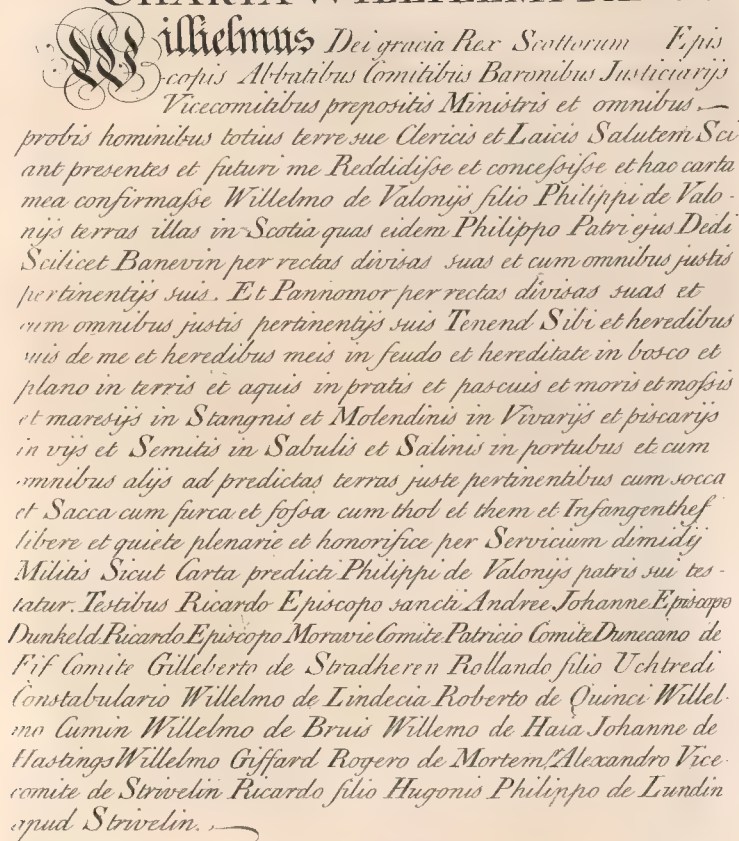 Willielmus Dei gracia Rex Scottorum Epis
copis Abbatibus Comitibus Baronibus Justiciarijs
Vicecomitibus prepositis Ministris et omnibus
probis hominibus totius terre sue Clericis et Laicis Salutem Sci
ant presentes et futuri me Reddidiſse et conceſsiſse et hac carta
mea confirmaſse Willelmo de Valonijs filio Philippi de Valo-
nijs terras illas in Scotia quas eidem Philippo Patri ejus Dedi
Scilicet Banevin per rectas divisas suas et cum omnibus justis
pertinentijs suis. Et Pannomor per rectas divisas suas et
cum omnibus justis pertinentijs suis Tenend Sibi et heredibus
suis de me et heredibus meis in feudo et hereditate in bosco et
plano in terris et aquis in pratis et pascuis et moris et moſsis
et maresijs in Stangnis et Molendinis in Vivarijs et piscarijs
in vijs et Semitis in Sabulis et Salinis in portubus et cum
omnibus alijs ad predictas terras juste pertinentibus cum socca
et Sacca cum furca et foſsa cum thol et them et Infangenthef
libere et quiete plenarie et honorifice per Servicium dimidij
Militis Sicut Carta predicti Philippi de Valonijs patris sui tes-
tatur. Testibus Ricardo Episcopo sancti Andree Johanne Episcopo
Dunkeld. Ricardo Episcopo Moravie Comite Patricio Comite Dunecano de
Fif Comite Gilleberto de Stradheren Rollando filio Uchtredi
Constabulario Willelmo de Lindecia Roberto de Quinci Willel-
mo Cumin Willelmo de Bruis Willemo de Haia Johanne de
Hastings Willelmo Giffard Rogero de Mortemr Alexandro Vice-
comite de Strivelin Ricardo filio Hugonis Philippo de Lundin
apud Strivelin.